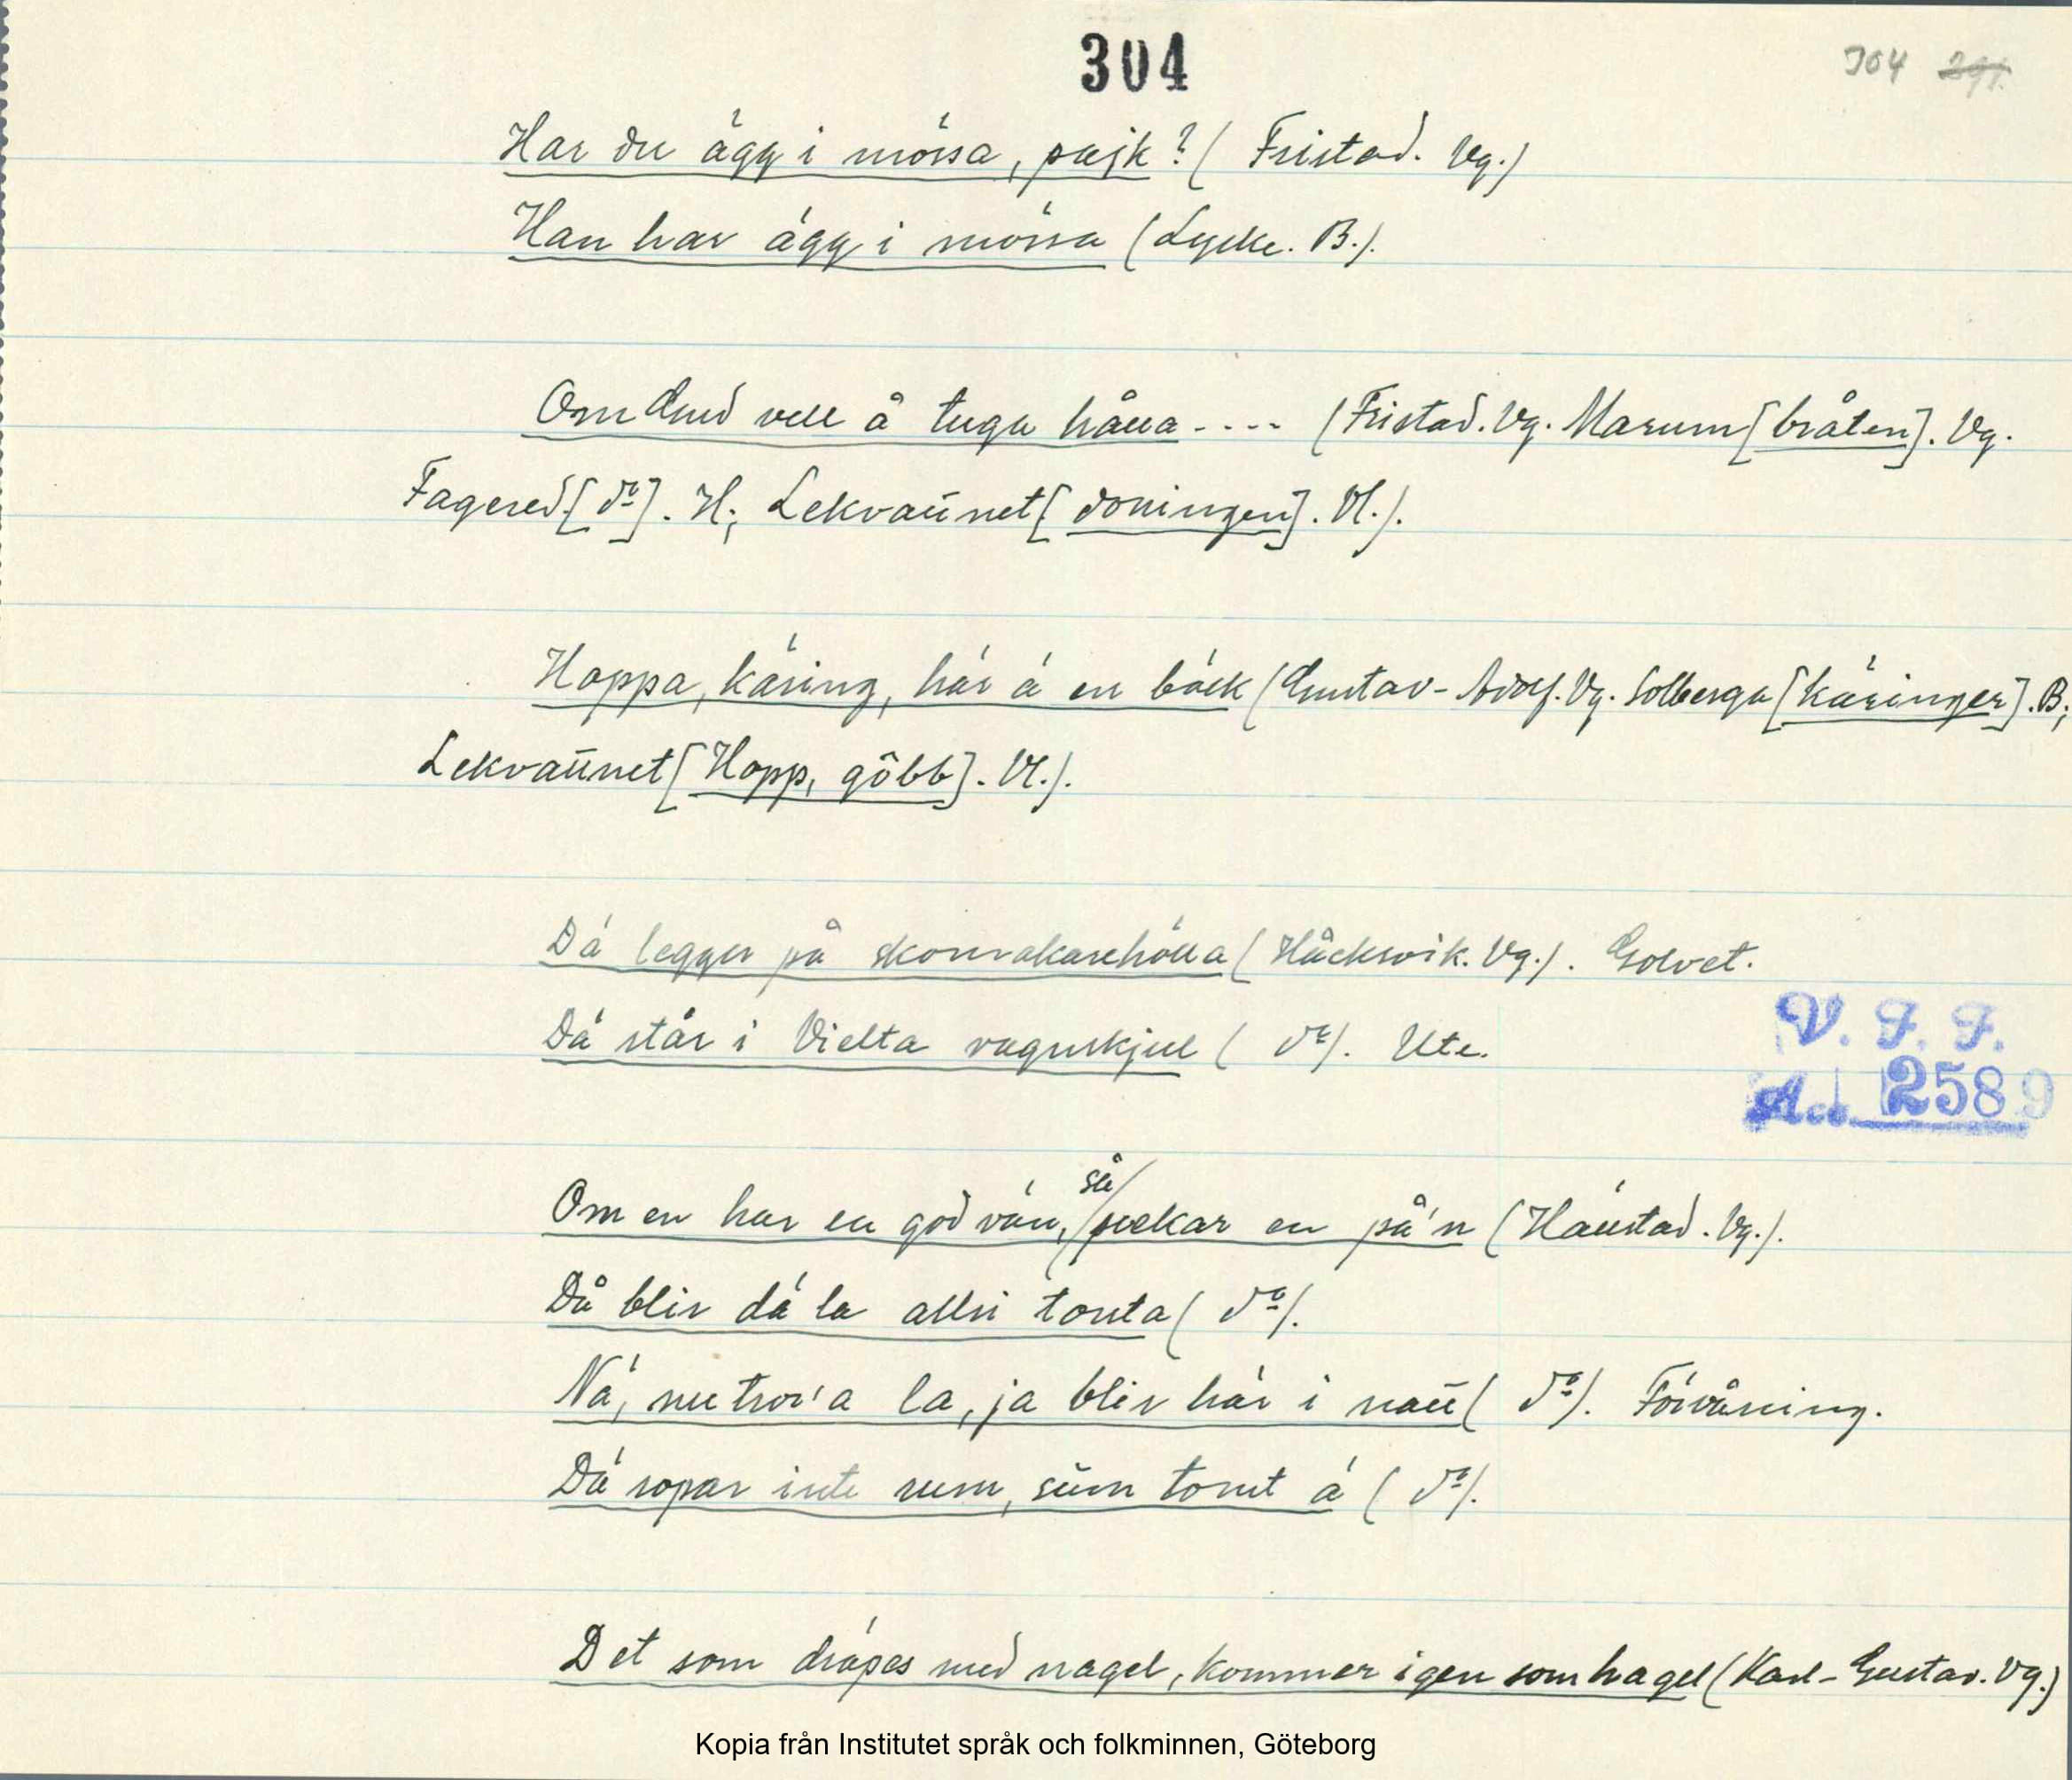 304
304 291.
Har du ägg i mössa, pajk? ( Fristad. Vg.)
Han har ägg i mössa (Lycke. B.).
Om Gud vell å tuga hålla .... (Fristad. Vg. Marum [bråten]. Vg.
Fagered. [do]. H; Lekvattnet [doningen]. Vl.).
Hoppa, käring, här ä en bäck (Gustav-Adolf. Vg. Solberga [käringer]. B;
Lekvattnet [Hopp, göbb]. Vl.).
Dä legger på skomakarehölla ( Håcksvik. Vg.). Golvet.
Dä står i Vielta vagnskjul ( do). Ute.
V. F. F.
Acc. 2589
så
Om en har en god vän, pekar en på'n (Hällstad. Vg.).
Då blir dä la allri tonta ( do).
Nä, nu tror'a la, ja blir här i natt ( do). Förvåning.
Dä ropar inte rum, sum tomt ä ( do).
Det som dräpes med nagel, kommer igen som hagel (Karl-Gustav. Vg.)
Kopia från Institutet språk och folkminnen, Göteborg